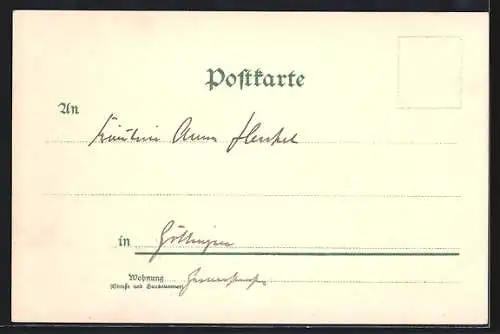 Postkarte
An Fräulein Anna Henkel
in Göttingen
Wohnung
(Straße und Hausnummer)